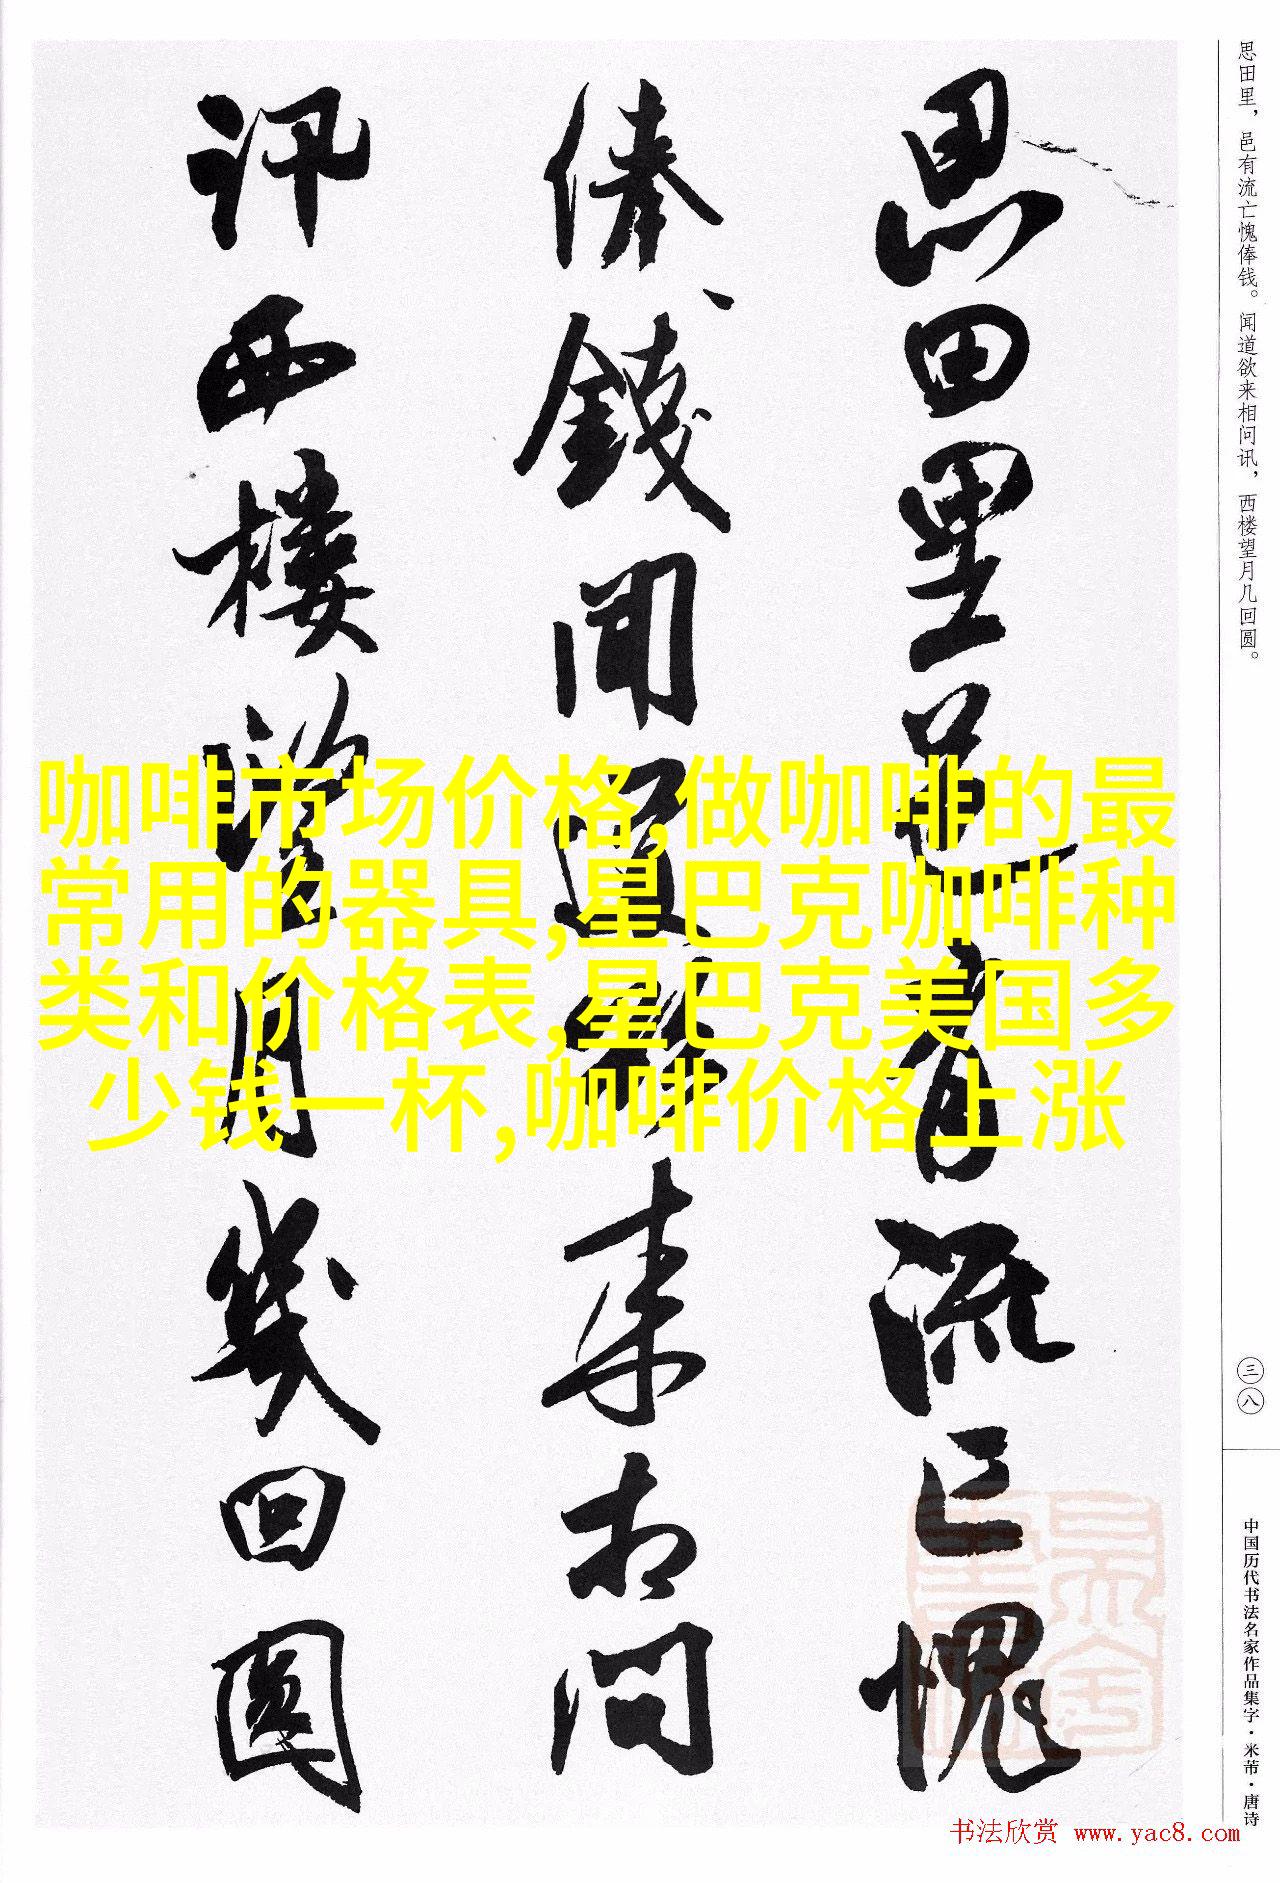 思田里，邑有流亡愧俸钱。闻道欲来相问讯，西楼望月几回圆。
思田里邑有流亡愧
俸錢聞道欲来相问
訊西樓望月幾回圓
咖啡市场价格,做咖啡的最
常用的器具,星巴克咖啡种
类和价格表,星巴克美国多
少钱一杯,咖啡价格上涨
三八
中国历代书法名家作品集字·米芾·唐诗
书法欣赏 www.yac8.com